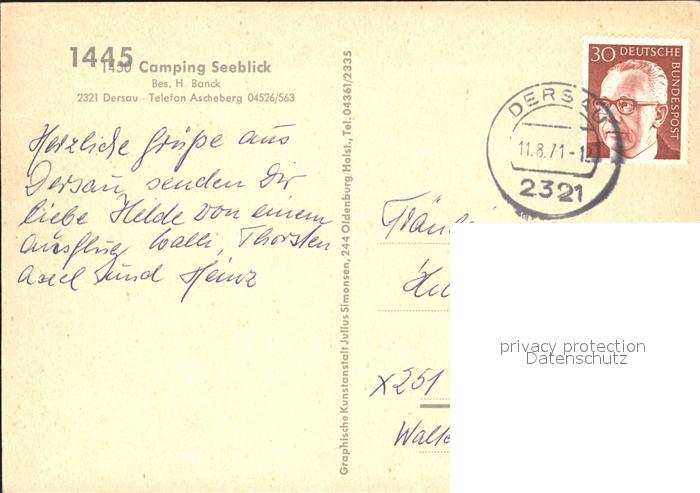 1445
1450 Camping Seeblick
Bes. H. Banck
2321 Dersau · Telefon Ascheberg 04526/563
Herzliche Grüße aus
Dersau, senden Dir
liebe Hilde von einem
Ausflug Walli, Thorsten
Axel und Heinz
Graphische Kunstanstalt Julius Simonsen, 244 Oldenburg/Holst., Tel. 04361/2335
30 DEUTSCHE
BUNDESPOST
DERSAU
11.8.71-12
2321
x251
privacy protection
Datenschutz